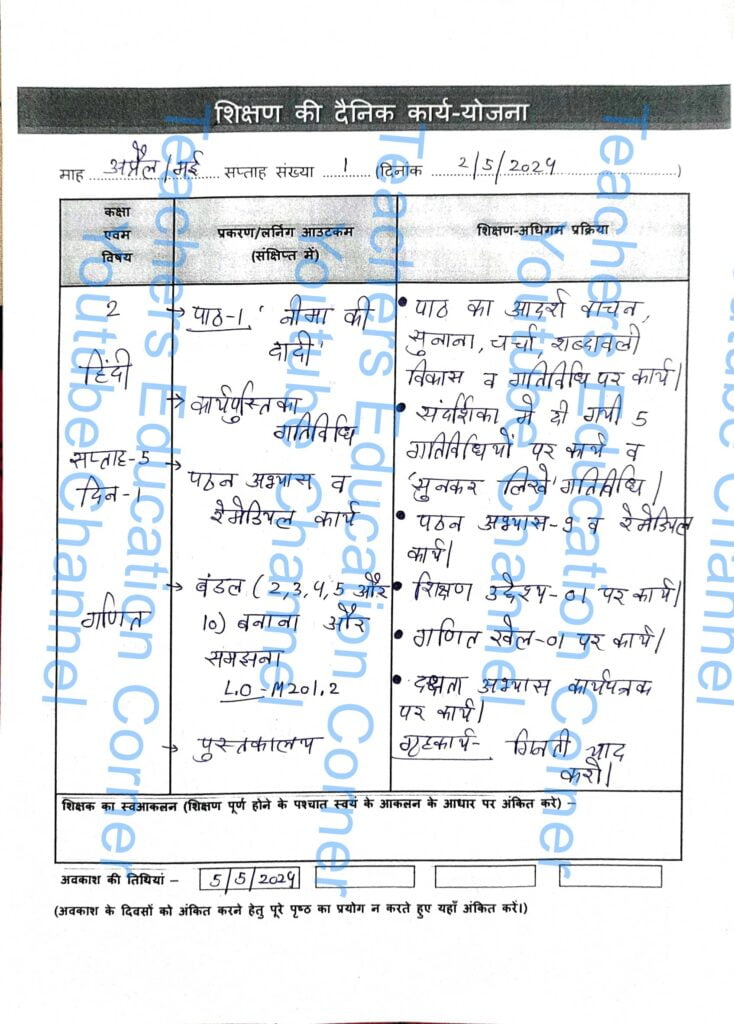 शिक्षण की दैनिक कार्य-योजना
माह अप्रैल/मई सप्ताह संख्या 1 (दिनांक 2/5/2024)
कक्षा
एवम
विषय
प्रकरण/लर्निग आउटकम
(संक्षिप्त में)
शिक्षण-अधिगम प्रक्रिया
2
हिंदी
सप्ताह-5
दिन-1
→ पाठ-1 'नीमा की
दादी'
→ कार्यपुस्तिका
गतिविधि
→ पठन अभ्यास व
रेमेडियल कार्य
• पाठ का आदर्श वाचन,
सुनाना, चर्चा, शब्दावली
विकास व गतिविधि पर कार्य।
• संदर्शिका में दी गयी 5
गतिविधियों पर कार्य व
'सुनकर लिखें' गतिविधि।
• पठन अभ्यास-9 व रेमेडियल
कार्य।
गणित
→ बंडल (2,3,4,5 और
10) बनाना और
समझना
L.O-M201.2
→ पुस्तकालय
• शिक्षण उद्देश्य-01 पर कार्य।
• गणित खेल-01 पर कार्य।
• दक्षता अभ्यास कार्यपत्रक
पर कार्य।
गृहकार्य- गिनती याद
करो।
शिक्षक का स्वआकलन (शिक्षण पूर्ण होने के पश्चात स्वयं के आकलन के आधार पर अंकित करे) –
अवकाश की तिथियां – 5/5/2024
(अवकाश के दिवसों को अंकित करने हेतु पूरे पृष्ठ का प्रयोग न करते हुए यहाँ अंकित करें।)
Teachers Education Corner
Youtube Channel
Teachers Education Corner
Youtube Channel
Teachers Education Corner
Youtube Channel